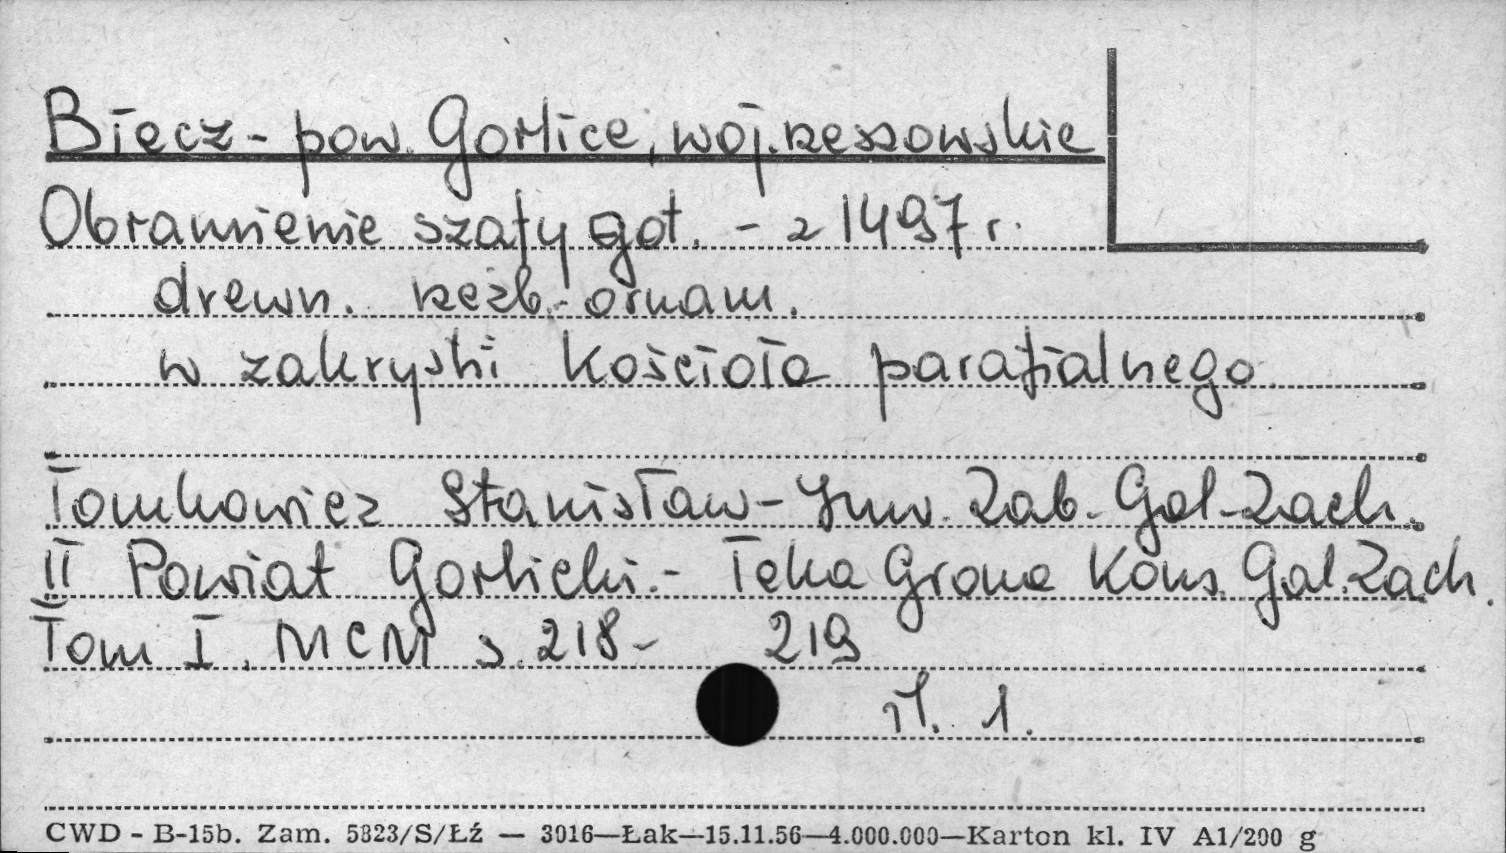 Biecz - pow. Gorlice, woj. rzeszowskie
Obramienie szafy got. - z 1497 r.
drewn. rzeźb.- ornam.
w zakrystii kościoła parafialnego
Tomkowicz Stanisław - Inw. Zab. Gal-Zach.
II Powiat Gorlicki. - Teka Grona Kons. Gal. Zach.
Tom I. MCM s. 218 - 219
il. 1.
CWD - B-15b. Zam. 5823/S/Łź — 3016—Łak—15.11.56—4.000.000—Karton kl. IV A1/200 g